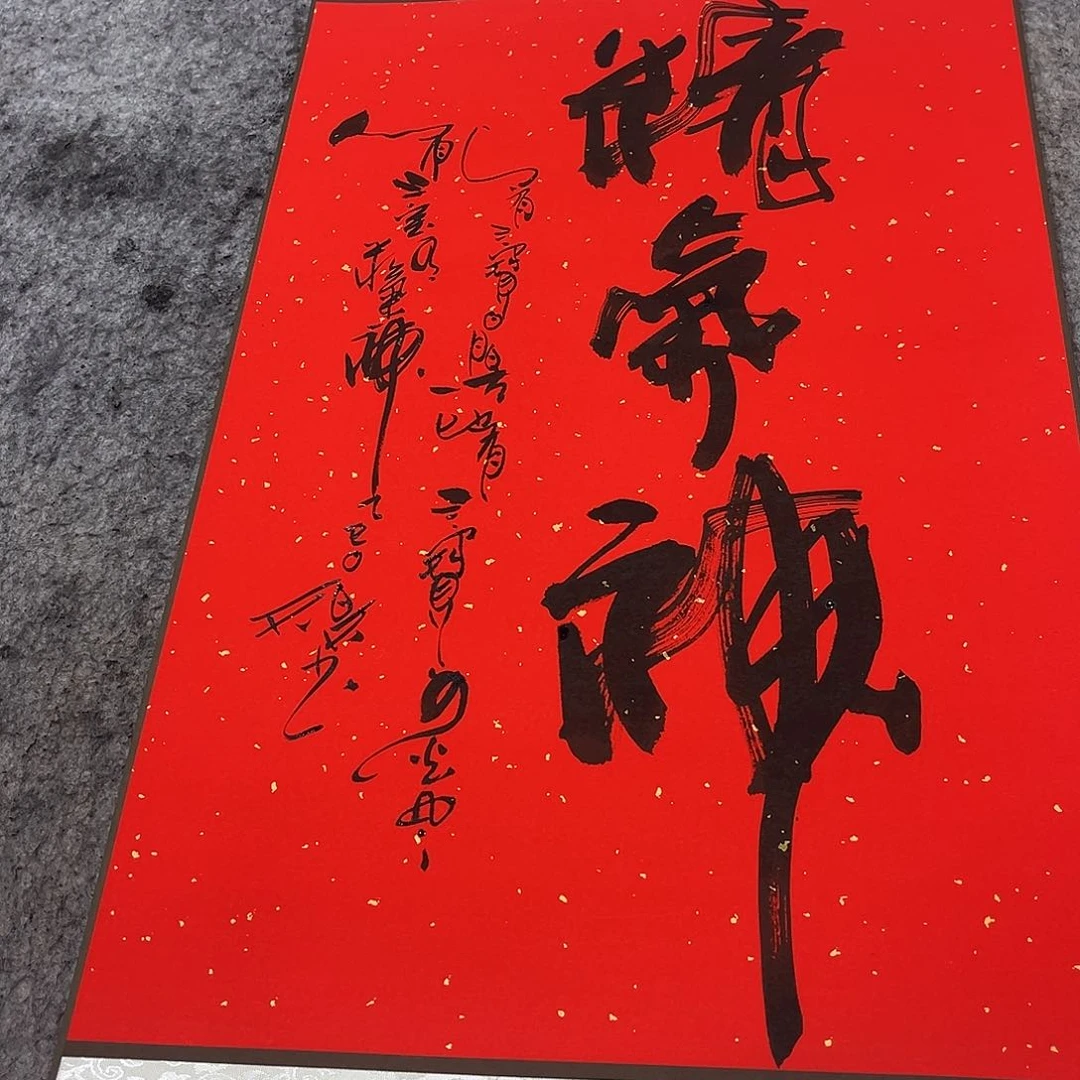 精氣神
天有三寶日月星地有三寶水火風
人有三寶精氣神